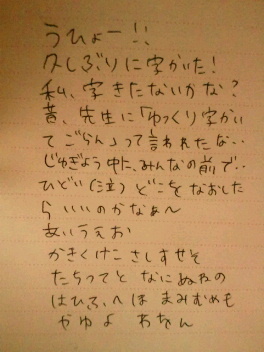 うひょー!!
久しぶりに字かいた!
私、字きたないかな?
昔、先生に「ゆっくり字かい
てごらん」って言われたな..
じゅぎょう中に、みんなの前で..
ひどい(泣)どこをなおした
らいいのかなぁ〜
あいうえお
かきくけこ さしすせそ
たちつてと なにぬねの
はひふへほ まみむめも
やゆよ わをん